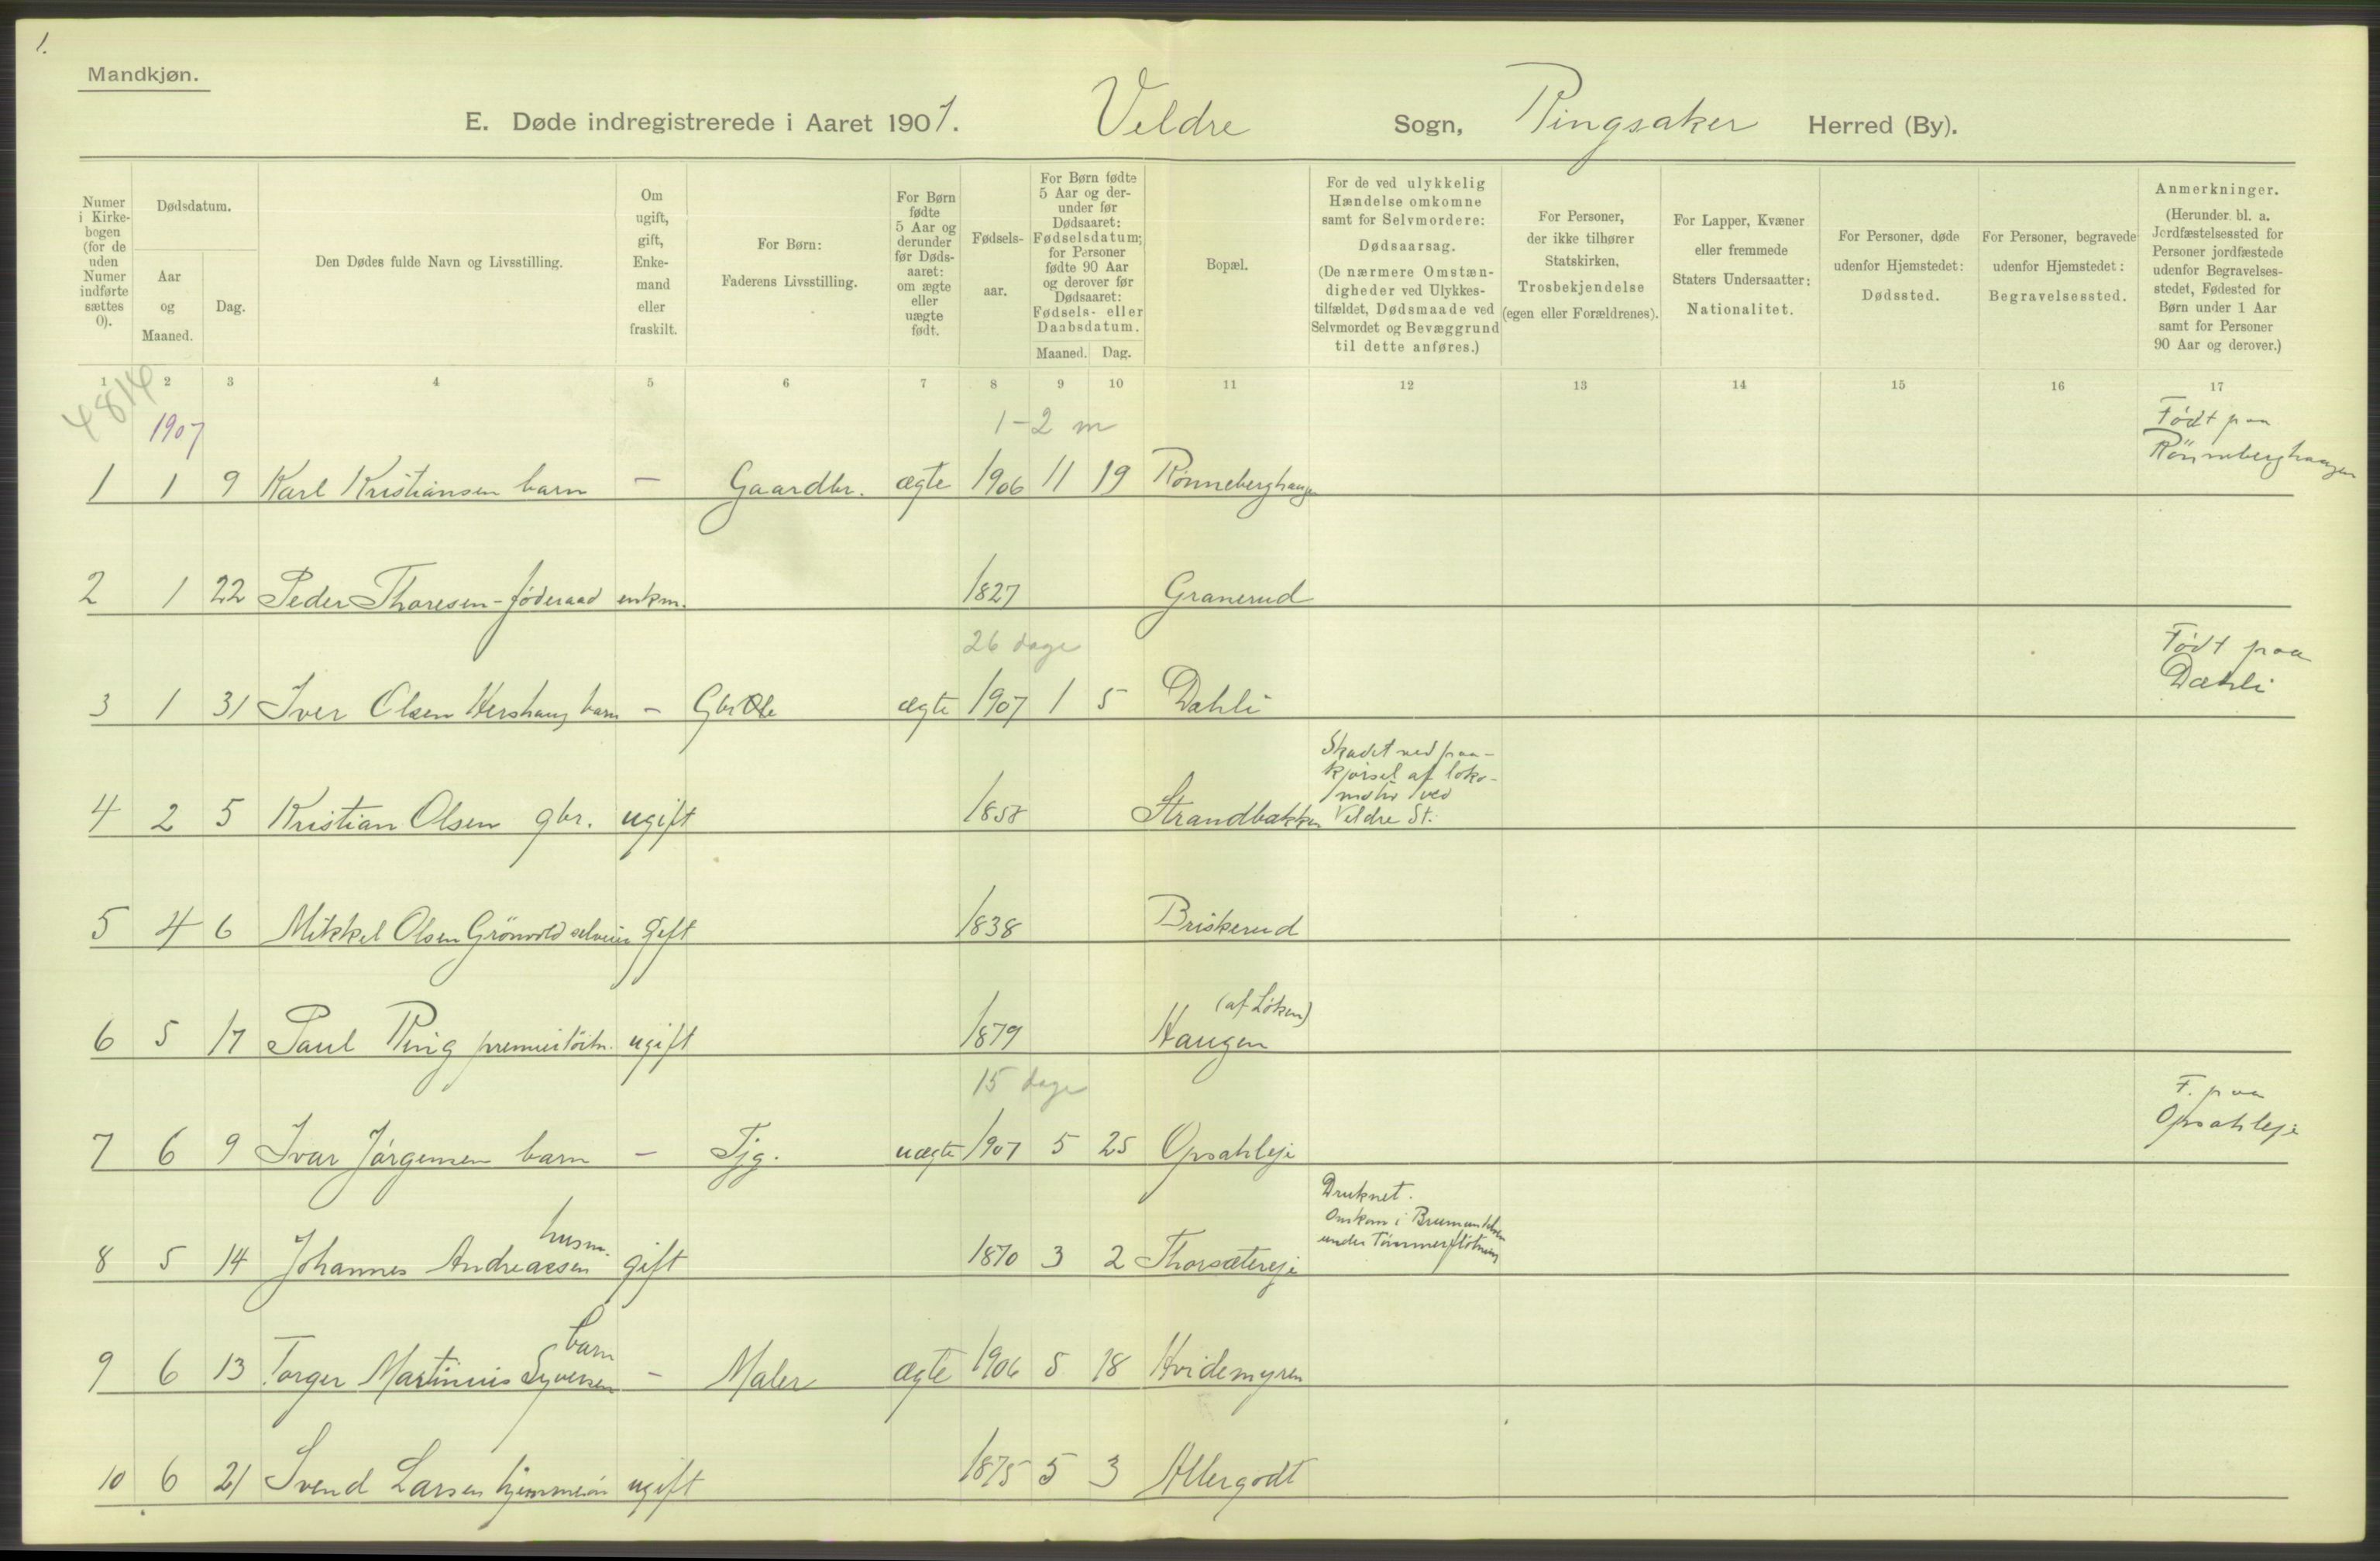 1.
Mandkjøn.
E. Døde indregistrerede i Aaret 1907. Veldre Sogn, Ringsaker Herred (By).
Numer i Kirke-bogen (for de uden Numer indførte sættes 0).
Dødsdatum.
Aar og Maaned.
Dag.
Den Dødes fulde Navn og Livsstilling.
Om ugift, gift, Enke-mand eller fraskilt.
For Børn:
Faderens Livsstilling.
For Børn fødte 5 Aar og derunder før Døds-aaret: om ægte eller uægte født.
Fødsels-aar.
For Børn fødte 5 Aar og der-under før Dødsaaret: Fødselsdatum; for Personer fødte 90 Aar og derover før Dødsaaret: Fødsels- eller Daabsdatum.
Maaned. Dag.
Bopæl.
For de ved ulykkelig Hændelse omkomne samt for Selvmordere:
Dødsaarsag.
(De nærmere Omstæn-digheder ved Ulykkes-tilfældet, Dødsmaade ved Selvmordet og Bevæggrund til dette anføres.)
For Personer, der ikke tilhører Statskirken, Trosbekjendelse (egen eller Forældrenes).
For Lapper, Kvæner eller fremmede Staters Undersaatter: Nationalitet.
For Personer, døde udenfor Hjemstedet: Dødssted.
For Personer, begravede udenfor Hjemstedet: Begravelsessted.
Anmerkninger.
(Herunder bl. a. Jordfæstelsessted for Personer jordfæstede udenfor Begravelses-stedet, Fødested for Børn under 1 Aar samt for Personer 90 Aar og derover.)
1 2 3 4 5 6 7 8 9 10 11 12 13 14 15 16 17
4814
1907
1-2 m
Født paa
Rönneberghaugen
1 1 9 Karl Kristiansen barn – Gaardbr. ægte 1906 11 19 Rönneberghaugen
2 1 22 Peder Thoresen - föderaad enkm. 1827 Granerud
26 dage
Født paa
Dæhli
3 1 31 Iver Olsen barn – Gbr ægte 1907 1 5 Dæhli
Skadet ved paa-
kjørsel af loko-
motiv ved
Veldre St.
4 2 5 Kristian Olsen gbr. ugift 1858 Strandbakken
5 4 6 Mikkel Olsen Grönvold selveier gift 1838 Briskerud
(af Løken)
6 5 17 Paul Ring premierlöitn. ugift 1879 Haugen
15 dage
F. paa
Opsahleje
7 6 9 Ivar Jörgensen barn – Tjg. uægte 1907 5 25 Opsahleje
Druknet.
Omkom i
under Tømmerfløtning
husm.
8 5 14 Johannes Andreassen gift 1870 3 2 Thorsætereje
barn
9 6 13 Torger Martinius Syversen – Maler ægte 1906 5 18 Hvidemyren
10 6 21 Svend Larsen ugift 1875 5 3 Allergodt